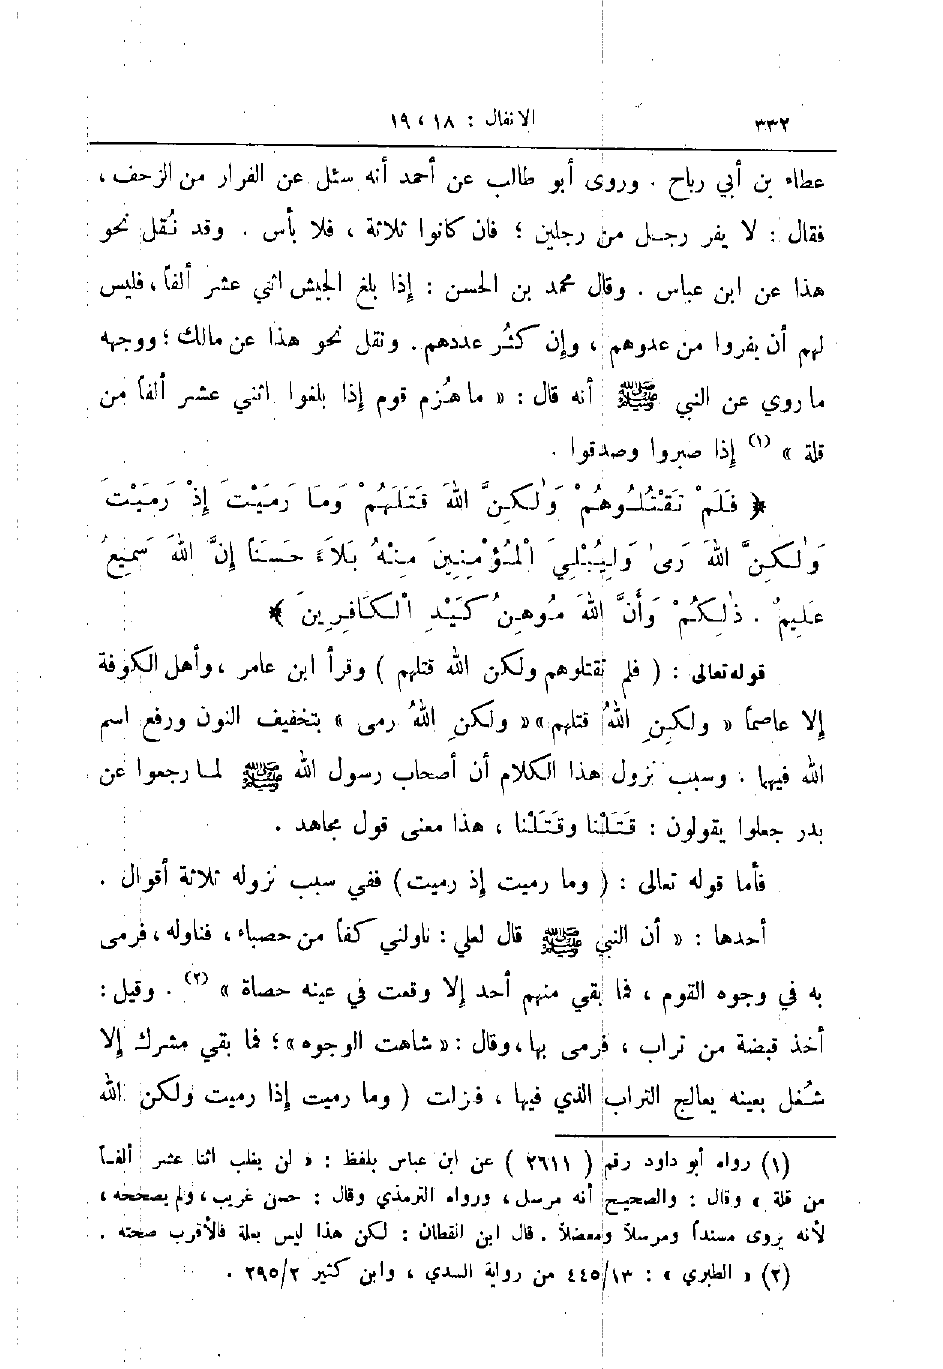 ٣٣٢ الانفال : ١٨ ، ١٩
عطاء بن أبي رباح . وروى أبو طالب عن أحمد أنه سئل عن الفرار من الزحف ،
فقال : لا يفر رجل من رجلين ؛ فان كانوا ثلاثة ، فلا بأس . وقد نُقل نحو
هذا عن ابن عباس . وقال محمد بن الحسن : إذا بلغ الجيش اثني عشر ألفاً ، فليس
لهم أن يفروا من عدوهم ، وإن كثُر عددهم . ونقل نحو هذا عن مالك ؛ ووجهه
ما روي عن النبي ﷺ أنه قال : « ما هُزم قوم إذا بلغوا اثني عشر ألفاً من
قلة » (١) إذا صبروا وصدقوا .
﴿ فَلَمْ تَقْتُلُوهُمْ وَلٰكِنَّ اللهَ قَتَلَهُمْ وَمَا رَمَيْتَ إِذْ رَمَيْتَ
وَلٰكِنَّ اللهَ رَمَىٰ وَلِيُبْلِيَ الْمُؤْمِنِينَ مِنْهُ بَلَاءً حَسَنَاً إِنَّ اللهَ سَمِيعٌ
عَلِيمٌ . ذٰلِكُمْ وَأَنَّ اللهَ مُوهِنُ كَيْدِ الْكَافِرِينَ ﴾
قوله تعالى : ( فلم تقتلوهم ولكن الله قتلهم ) وقرأ ابن عامر ، وأهل الكوفة
إلا عاصماً « ولكِنِ اللهُ قتلهم » « ولكنِ اللهُ رمى » بتخفيف النون ورفع اسم
الله فيها . وسبب نزول هذا الكلام أن أصحاب رسول الله ﷺ لما رجعوا عن
بدر جعلوا يقولون : قَتَلْنا وقَتَلْنا ، هذا معنى قول مجاهد .
فأما قوله تعالى : ( وما رميت إذ رميت ) ففي سبب نزوله ثلاثة أقوال .
أحدها : « أن النبي ﷺ قال لعلي : ناولني كفاً من حصباء ، فناوله ، فرمى
به في وجوه القوم ، فما بقي منهم أحد إلا وقعت في عينه حصاة » (٢) . وقيل :
أخذ قبضة من تراب ، فرمى بها ، وقال : « شاهت الوجوه » ؛ فما بقي مشرك إلا
شُغل بعينه يعالج التراب الذي فيها ، فنزلت ( وما رميت إذا رميت ولكن الله
(١) رواه أبو داود رقم ( ٢٦١١ ) عن ابن عباس بلفظ : « لن يغلب اثنا عشر ألفاً
من قلة » وقال : والصحيح أنه مرسل ، ورواه الترمذي وقال : حسن غريب ، ولم يصححه ،
لأنه يروى مسنداً ومرسلاً ومعضلاً . قال ابن القطان : لكن هذا ليس بعلة فالأقرب صحته .
(٢) « الطبري » : ٤٤٥/١٣ من رواية السدي ، وابن كثير ٢٩٥/٢ .